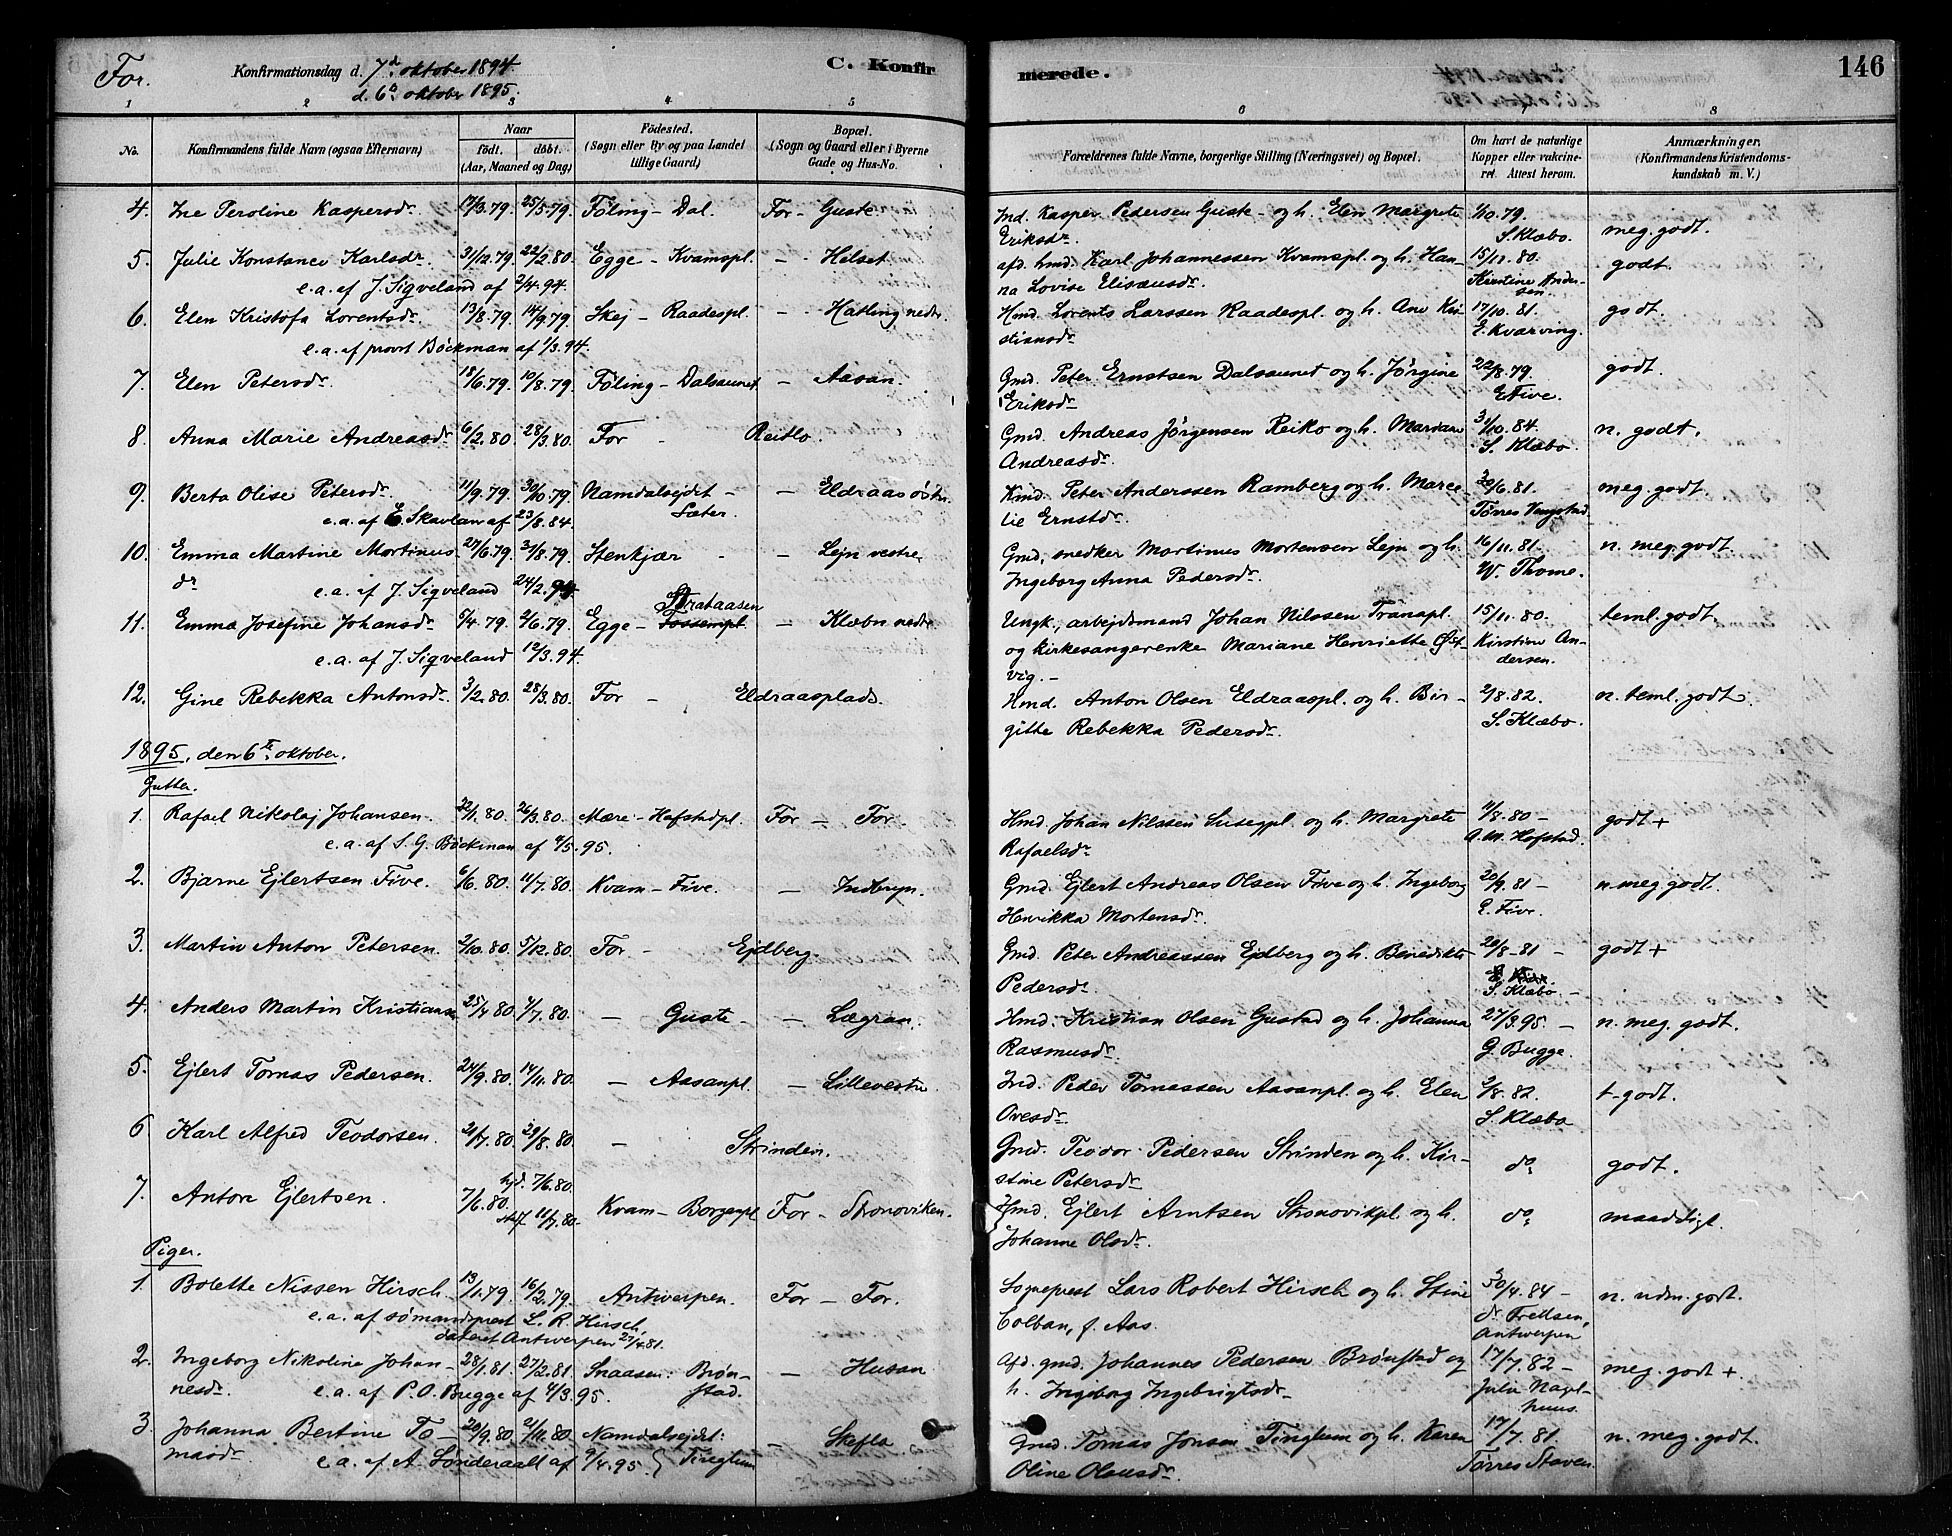 For. Konfirmationsdag d. 7d. oktober 1894. C. Konfirmerede. 146
d. 6te oktober 1895.
1 2 3 4 5 6 7 8
No. Konfirmandens fulde Navn (ogsaa Efternavn) Naar født, døbt. (Aar, Maaned og Dag) Födested. (Sogn eller By og paa Landet tillige Gaard) Bopæl. (Sogn og Gaard eller i Byerne Gade og Hus-No. Forældrenes fulde Navne, borgerlige Stilling (Næringsvei) og Bopæl. Om havt de naturlige Kopper eller vakcineret. Attest herom. Anmærkninger. (Konfirmandens Kristendomskundskab m. V.)
4. Ine Peroline Kaspersdr. 17/3.79. 25/5.79. Föling - Dal. For - Guste Ind. Kasper Pedersen Guste - og h. Elen Margrete Eriksdr. 1/10.79. S. Klæbo. meg. godt.
5. Julie Konstance Karlsdr. 31/12.79. 22/2.80. Egge - Kvamspl. - Helset afd. hmd. Karl Johannessen Kvamspl. og h. Hanna Lovise Elisæusdr. 15/11.80. Kirstine Andersen. godt.
e.a. af J. Sigveland af 2/4.94.
6. Elen Kristofa Lorentsdr. 13/8.79. 14/9.79. Skej - Raadespl. - Hatling nedre. Hmd. Lorents Larssen Raadespl. og h. Ane Kristiansdr. 17/10.81. E. Kværving. godt.
e.a. af provst Böckman af 1/3.94.
7. Elen Petersdr. 18/6.79. 10/8.79. Föling - Dalsaunet - Aasan. Gmd. Peter Ernstsen Dalsaunet og h. Jörgine Eriksdr. 22/8.79. E. Five. godt.
8. Anna Marie Andreasdr. 6/2.80. 28/3.80. For - Reitlo. Gmd. Andreas Jörgensen Reitlo og h. Marian Andreasdr. 3/10.84. S. Klæbo. n. godt.
9. Berta Olise Petersdr. 11/9.79. 30/10.79. Namdalsejdet - Sæter. - Eldraas östre. Kmd. Peter Anderssen Ramberg og h. Marselie Ernstdr. 20/6.81. Törres Vengstad. meg. godt.
e.a. af E. Skavlan af 23/8.84.
10. Emma Martine Mortinusdr 27/6.79. 3/8.79. Stenkjær - - Lejn vestre Gmd, snedker Mortinus Mortensen Lejn og h. Ingeborg Anna Pedersdr. 16/11.81. W. Thome. n. meg. godt.
e.a. af J. Sigveland 24/2.94
11. Emma Josefine Johansdr. 5/4.79. 2/6.79. Egge - Strataasen - Klæbu nedre Ungk, arbejdsmand Johan Nilssen Tranapl. og kirkesangerenke Mariane Henriette Østvig. - 15/11.80. Kirstine Andersen. teml. godt.
e.a. af J. Sigveland 12/3.94.
12. Gine Rebekka Antonsdr. 3/2.80. 28/3.80. For - Eldraasplads. Hmd. Anton Olsen Eldraaspl. og h. Birgitte Rebekka Pedersdr. 2/8.82. S. Klæbo. n. teml. godt.
1895, den 6te oktober.
Gutter.
1. Rafael Nikolaj Johansen. 22/1.80. 26/3.80. Mære - Hofstadpl. For - For. Hmd. Johan Nilssen Susegpl. og h. Margrete Rafaelsdr. 11/8.80 - A.M. Hofstad. godt +
e.a. af S. G. Böckman af 4/5.95.
2. Bjarne Ejlertsen Five. 6/6.80. 11/7.80. Kvam - Five. - Indbryn. Gmd. Ejlert Andreas Olsen Five og h. Ingeborg Henrikka Mortensdr. 20/9.81 - E. Five. n. meg. godt.
3. Martin Anton Petersen. 2/10.80. 5/12.80. For - Ejdberg. Gmd. Peter Andreassen Ejdberg og h. Benedikte Pedersdr. 20/8.81 - S. Klæbo - godt +
4. Anders Martin Kristiansen 25/4.80. 4/7.80. - Guste - - Lægran. Hmd. Kristian Olsen Gustad og h. Johanna Rasmusdr. 27/3.95. - G. Bugge. n. meg. godt.
5. Ejlert Tomas Pedersen. 24/9.80. 14/11.80. - Aasanpl. - Lillevestre Ind. Peder Tomassen Aasanpl. og h. Elen Ovesdr. 2/8.82. S. Klæbo t. godt.
6 Karl Alfred Teodorsen. 21/7.80. 29/8.80. - Strinden. Gmd. Teodor Pedersen Strinden og h. Kirstine Petersdr. do. godt.
7. Antore Ejlertsen. 7/6.80. hjd. 7/6.80. stf 11/7.80. Kvam - Borgenpl For - Stronoviken. Hmd. Ejlert Arntsen Stronovikpl. og h. Johanne Olsdr. do. maadeligt.
Piger.
1. Bolette Nissen Hirsch 13/1.79. 16/2.79. Antwerpen. For - For. Sogneprest Lars Robert Hirsch og h. Stine Colban, f. Aas. 30/4.84 - dr. Frettsen, Antwerpen n. udm. godt.
e.a. af sömandsprest L. R. Hirsch, dateret Antwerpen 27/4.81.
2. Ingeborg Nikoline Johannesdr. 28/1.81. 27/2.81. Snaasen: Brönstad. - Husan Afd. gmd. Johannes Pedersen Brönstad og h. Ingeborg Ingebrigtsdr. 17/7.82 - Julia Nagelhuus. meg. godt +.
e.a. af P. O. Bugge af 4/3.95.
3. Johanna Bertine Tomasdr. 20/9.80. 21/11.80. Namdalsejdet: Tinglum - Skefte Gmd. Tomas Jonsen Tinglum og h. Karen Oline Olausdr. 17/7.81. Törres Staven. n. meg. godt.
e.a. af A. Sönderaall af 9/4.95.